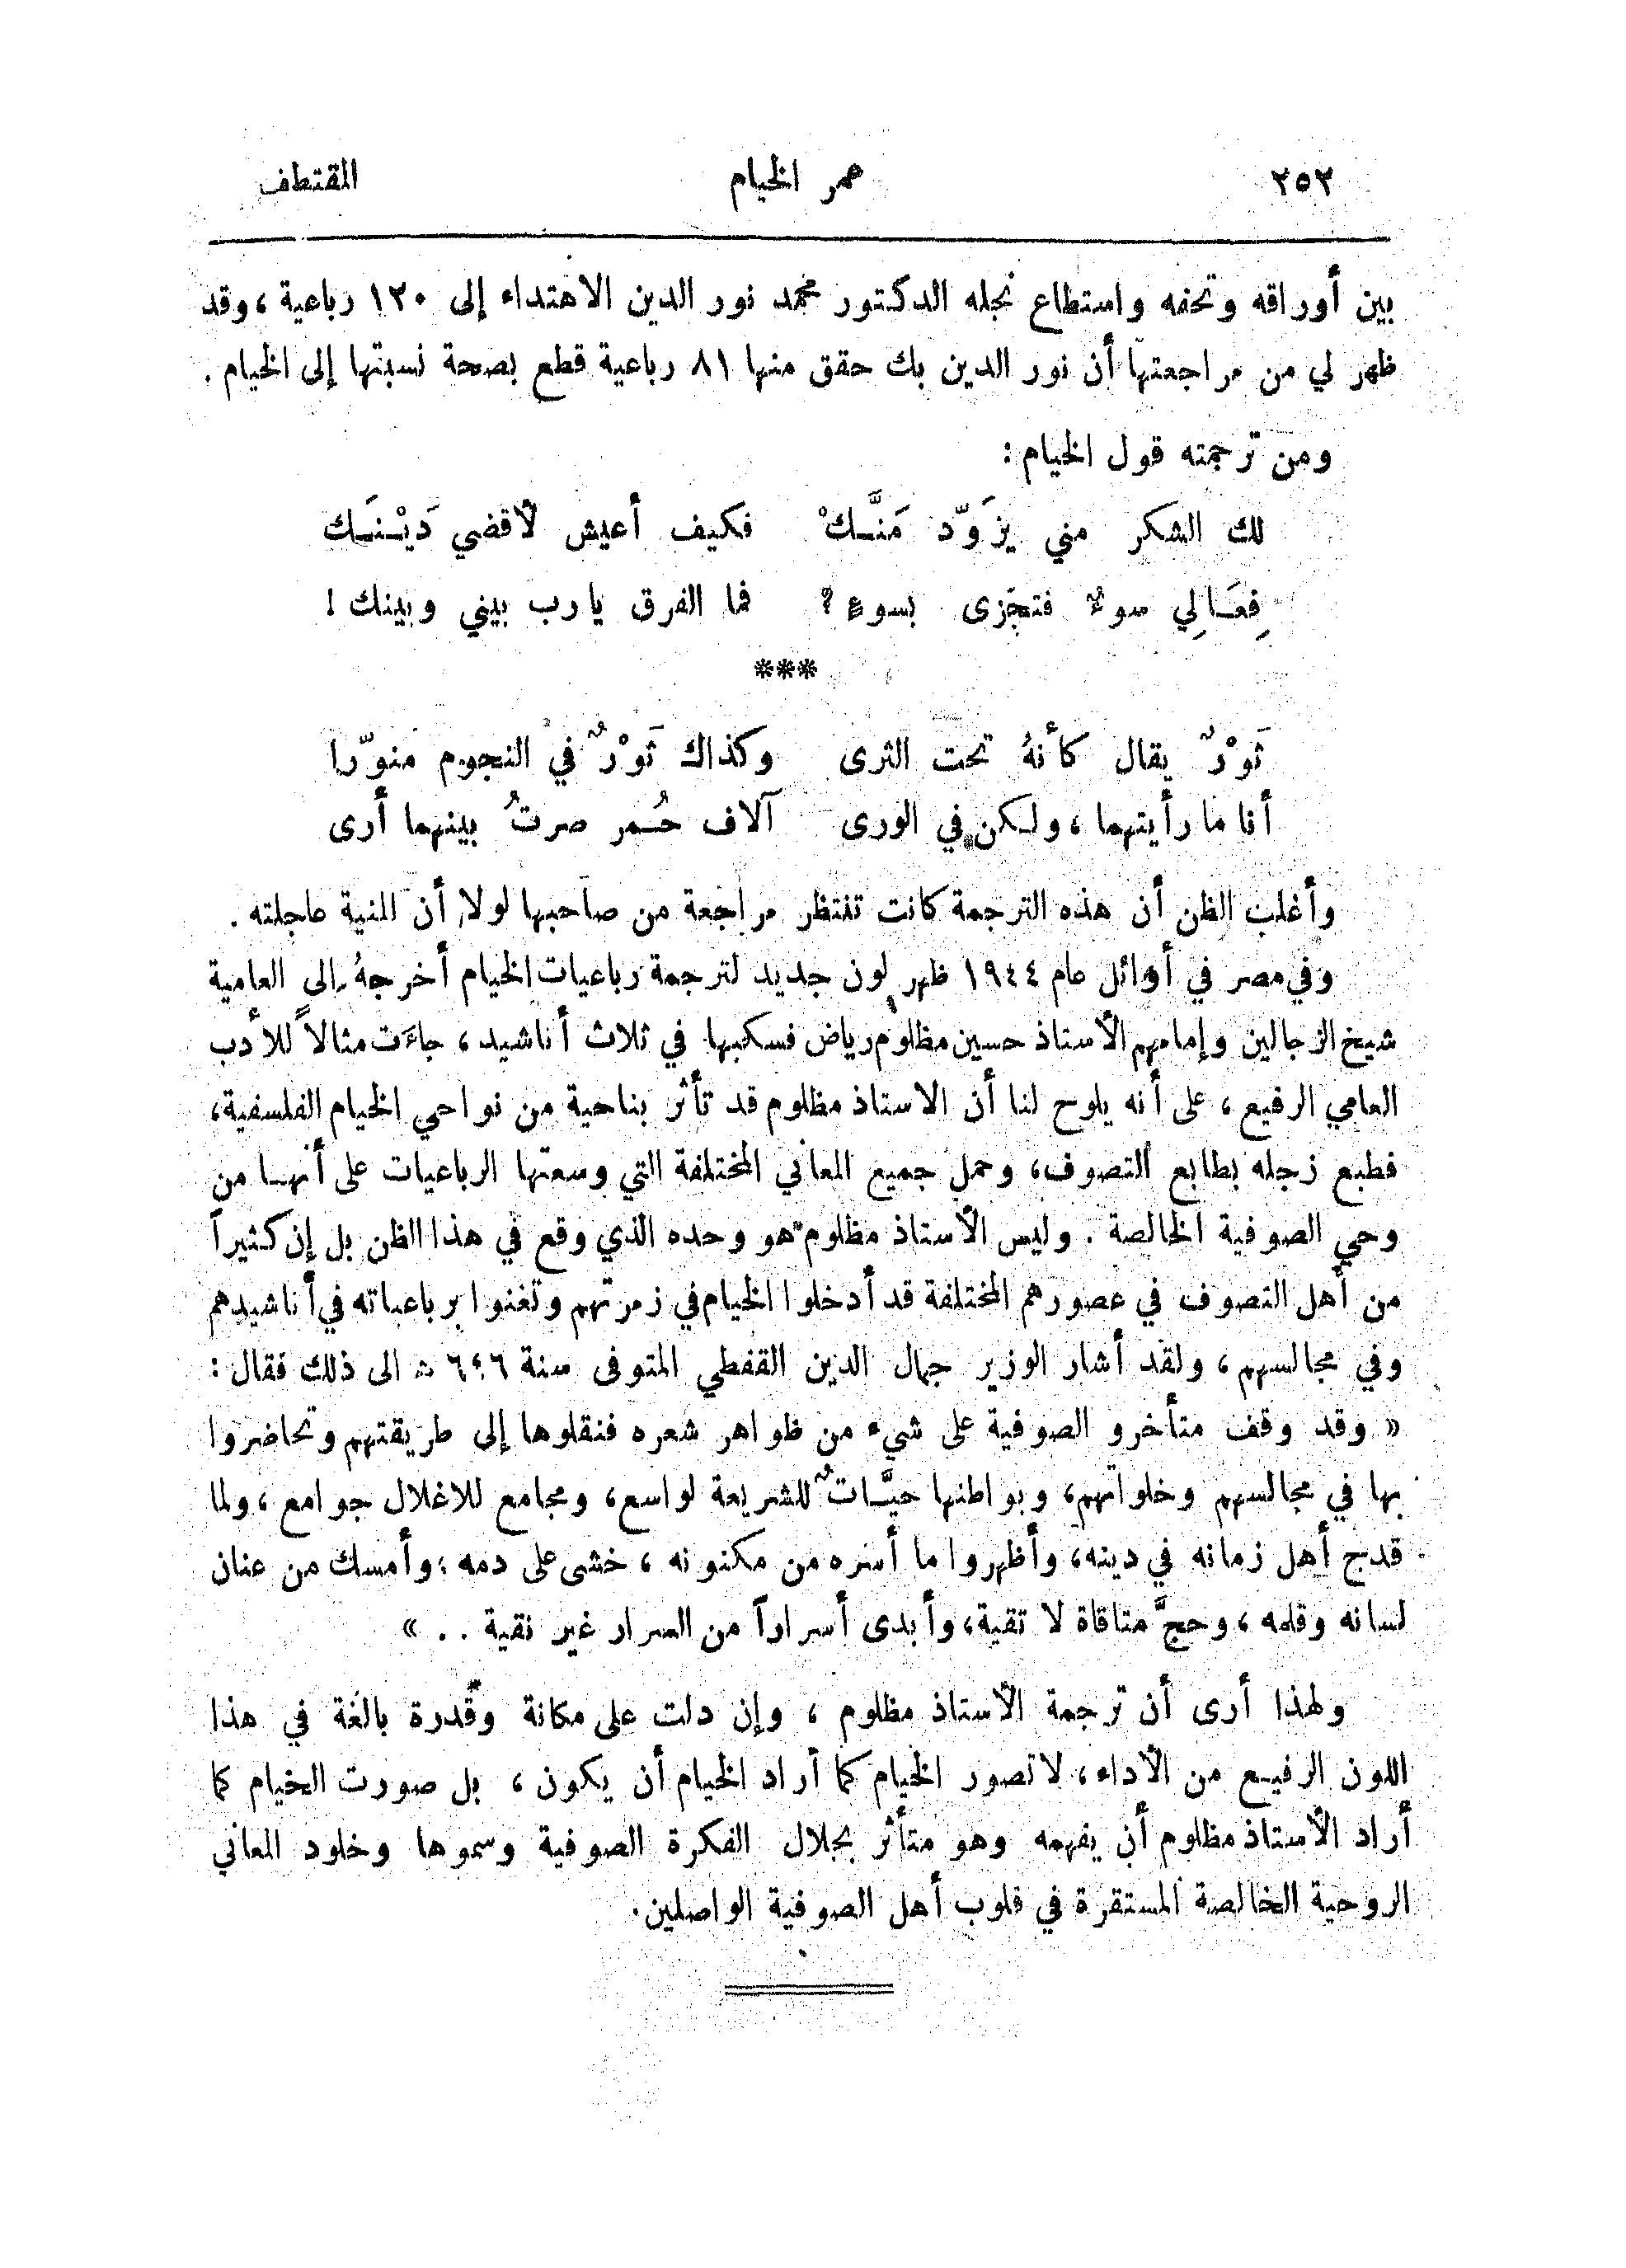 ٢٥٢ عمر الخيام المقتطف
بين أوراقه وتحفه واستطاع نجله الدكتور محمد نور الدين الاهتداء إلى ١٢٠ رباعية ، وقد
ظهر لي من مراجعتها أن نور الدين بك حقق منها ٨١ رباعية قطع بصحة نسبتها إلى الخيام .
ومن ترجمته قول الخيام :
لك الشكر مني يزَوّد مَنَّـكْ فكيف أعيش لأقضي دَيْـنَـك
فِعَـالِي سوءٌ فتجَزى بسوءٍ ؟ فما الفرق يارب بيني وبينك !
***
ثَوْرٌ يقال كأنهُ تحت الثرى وكذاك ثَوْرٌ في النجوم منوّرا
أنا ما رأيتهما ، ولـكن في الورى آلاف حُـمر صرتُ بينهما أرى
وأغلب الظن أن هذه الترجمة كانت تنتظر مراجعة من صاحبها لولا أن المنية عاجلته .
وفي مصر في أوائل عام ١٩٤٤ ظهر لون جديد لترجمة رباعيات الخيام أخرجهُ إلى العامية
شيخ الزجالين وإمامهم الأستاذ حسين مظلوم رياض فسكبها في ثلاث أناشيد ، جاءَت مثالاً للأدب
العامي الرفيع ، على أنه يلوح لنا أن الاستاذ مظلوم قد تأثر بناحية من نواحي الخيام الفلسفية ،
فطبع زجله بطابع التصوف ، وحمل جميع المعاني المختلفة التي وسعتها الرباعيات على أنهـا من
وحي الصوفية الخالصة . وليس الأستاذ مظلوم هو وحده الذي وقع في هذا الظن بل إن كثيراً
من أهل التصوف في عصورهم المختلفة قد أدخلوا الخيام في زمرتهم وتغنوا برباعياته في أناشيدهم
وفي مجالسهم ، ولقد أشار الوزير جمال الدين القفطي المتوفى سنة ٦٤٦ ه الى ذلك فقال :
« وقد وقف متأخرو الصوفية على شيء من ظواهر شعره فنقلوها إلى طريقتهم وتحاضروا
بها في مجالسهم وخلواتهم ، وبواطنها حيَّـاتٌ للشريعة لواسع ، ومجامع للاغلال جوامع ، ولما
قدح أهل زمانه في دينه ، وأظهروا ما أسره من مكنونه ، خشى على دمه ؛ وأمسك من عنان
لسانه وقلمه ، وحجَّ متاقاة لا تقية ، وأبدى أسراراً من السرار غير نقية . . »
ولهذا أرى أن ترجمة الأستاذ مظلوم ، وإن دلت على مكانة وقدرة بالغة في هذا
اللون الرفيـع من الأداء ، لا تصور الخيام كما أراد الخيام أن يكون ، بل صورت الخيام كما
أراد الأستاذ مظلوم أن يفهمه وهو متأثر بجلال الفكرة الصوفية وسموها وخلود المعاني
الروحية الخالصة المستقرة في قلوب أهل الصوفية الواصلين .